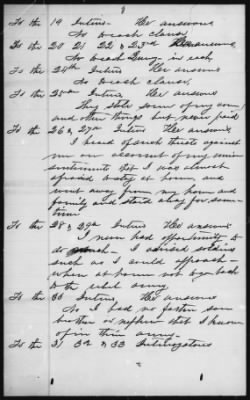 8
To the 19 Inters. Her answers
To each clause,
To the 20 21 22 & 23rd answers,
To each Query in each
To the 24th Inters Her answers
To each clause,
To the 25th Inters, Her answers
They stole some of my corn,
and other things but never paid
To the 26 & 27th Inters Her answers,
I heard of such threats against
me on account of my union
sentiments that I was almost
afraid to stay at home, and
went away from my home and
family and staid away for some
time
To the 28 & 29th Inters Her answers
I never had opportunity to
do much. I advised soldiers
such as I could approach
when at home not to go back
to the rebel army
To the 30 Inters, Her answers
No I had no foster son
brother or nephew that I know
of in their army.
To the 31 32 & 33 Interrogatories